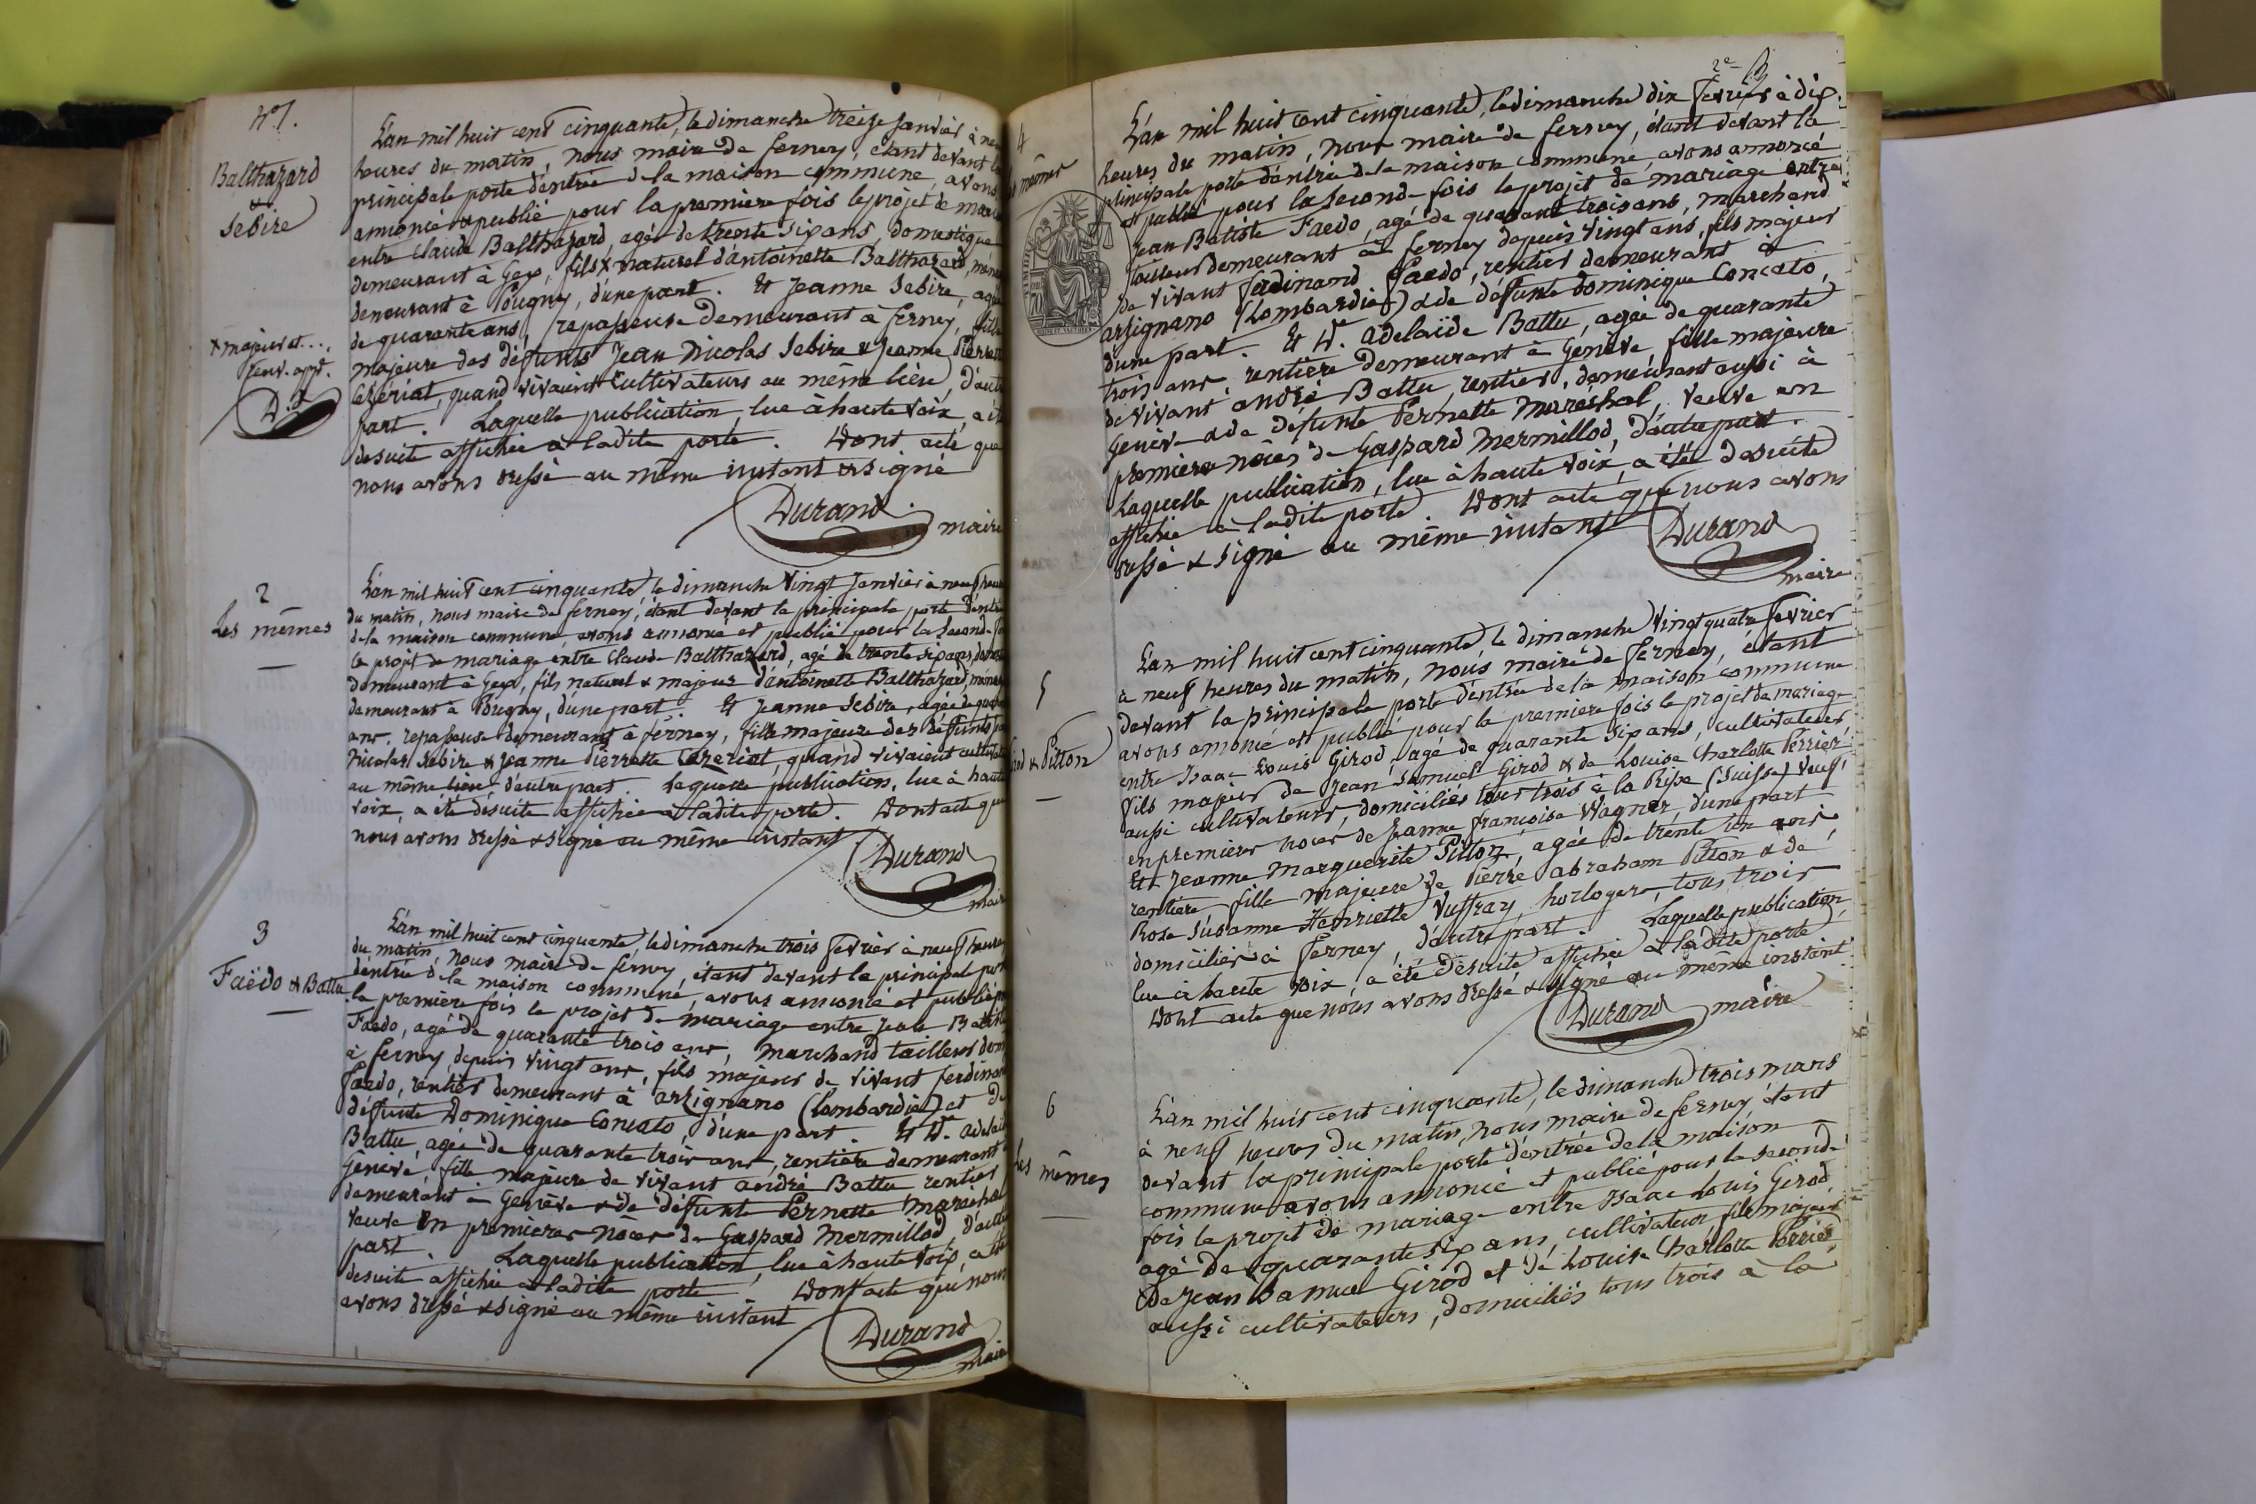 N° 1.
Balthazard
&
Sebire
L'an mil huit cent cinquante, le dimanche treize Janvier à
heures du matin, nous maire de ferney, étant devant
principale porte d'entrée de la maison commune, avons
annoncé & publié pour la premiere fois le projet de
entre Claude Balthazard, agé de trente six ans, domestique
demeurant à Gex, fils x naturel d'antoinette Balthazard,
demeurant à Pougny, d'une part. Et Jeanne Sebire,
de quarante ans, repasseuse demeurant à ferney, fille
majeure des défunts Jean Nicolas Sebire & Jeanne
Cézériat, quand vivaient Cultivateurs au même lieu,
part. Laquelle publication, lue à haute voix, a
desuite affichée à ladite porte. Dont acte que
nous avons dressé au même instant & signé
x majeur et
Durand
maire
2
Les mêmes
L'an mil huit cent cinquante, le dimanche vingt Janvier à neuf
du matin, nous maire de ferney, étant devant la principale porte
de la maison commune, avons annoncé et publié pour la Second
le projet de mariage entre Claude Balthazard, agé de trente six ans,
demeurant à Gex, fils naturel & majeur d'antoinette Balthazard,
demeurant à Pougny, d'une part. Et Jeanne Sebire, agée de
ans, repasseuse demeurant à ferney, fille majeure des défunts
Nicolas Sebire & Jeanne Pierrette Cézériat, quand vivaient
au même lieu, d'autre part. Laquelle publication, lue à haute
voix, a été desuite affichée à ladite porte. Dont acte que
nous avons dressé & signé au même instant
Durand
3
Faëdo & Battu
L'an mil huit cent cinquante, le dimanche trois fevrier à neuf heures
du matin, nous maire de ferney, étant devant la principale
d'entrée de la maison commune, avons annoncé et publié
la premiere fois le projet de mariage entre Jean
Faedo, agé de quarante trois ans, marchand tailleur
à ferney, depuis vingt ans, fils majeur de vivant
Faedo, rentier demeurant à arzignano (lombardie) et
défunte Dominique Concato, d'une part. Et
Battu, agée de quarante trois ans, rentière demeurant
Genève, fille majeure de vivant andré Battu rentier
demeurant à Genève & de défunte Pernette
veuve en premieres nôces de Gaspard Mermillod,
part. Laquelle publication, lue à haute voix,
desuite affichée à ladite porte. Dont acte que nous
avons dressé & signé au même instant
Durand
2e
4
mêmes
L'an mil huit cent cinquante, le dimanche dix fevrier à dix
heures du matin, nous maire de ferney, étant devant la
principale porte d'entrée de la maison commune, avons annoncé
et publié pour la Seconde fois le projet de mariage entre
Jean Batiste Faedo, agé de quarante trois ans, marchand
tailleur demeurant à ferney depuis vingt ans, fils majeur
de vivant ferdinand Faedo, rentier demeurant à
arzignano (Lombardie) & de défunte Dominique Concato,
d'une part. Et adelaïde Battu, agée de quarante
trois ans, rentière demeurant à Genève, fille majeure
de vivant andré Battu, rentier, demeurant aussi à
Genève & de défunte Pernette Maréchal, veuve en
premieres nôces de Gaspard Mermillod, d'autre part.
Laquelle publication, lue à haute voix, a été desuite
affichée à ladite porte. Dont acte que nous avons
dressé & signé au même instant
Durand
maire
5
& Pitton
L'an mil huit cent cinquante, le dimanche vingt quatre fevrier
à neuf heures du matin, nous maire de ferney, étant
devant la principale porte d'entrée de la maison commune
avons annoncé et publié pour la premiere fois le projet de mariage
entre Isaac Louis Girod, agé de quarante six ans, cultivateur
fils majeur de Jean Samuel Girod & de Louise Charlotte Perrier
aussi cultivateurs, domiciliés tous trois à la (Suisse) veuf
en premieres noces de Jeanne françoise Wagner, d'une part
Et Jeanne Marguerite Pitton, agée de trente un ans
rentière, fille majeure de Pierre abraham Pitton & de
Rose Susanne Henriette horlogers, tous trois
domiciliés à ferney, d'autre part. Laquelle publication,
lue à haute voix, a été desuite affichée à ladite porte.
Dont acte que nous avons dressé & signé au même instant
Durand
maire
6
mêmes
L'an mil huit cent cinquante, le dimanche trois mars
à neuf heures du matin, nous maire de ferney étant
devant la principale porte d'entrée de la maison
commune avons annoncé et publié pour la seconde
fois le projet de mariage entre Isaac Louis Girod,
agé de quarante six ans, cultivateur, fils majeur
de Jean Samuel Girod et de Louise Charlotte Perrier
aussi cultivateurs, domiciliés tous trois à la